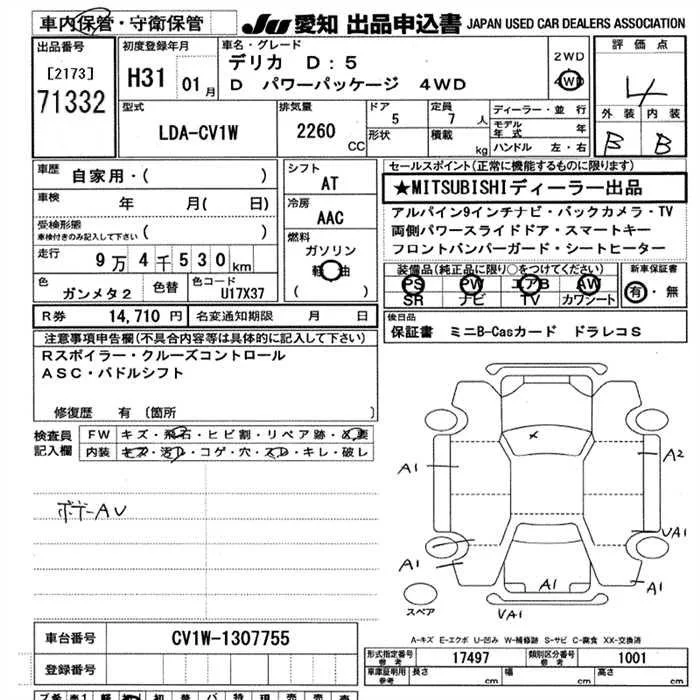 車内保管・守衛保管
JU 愛知 出品申込書 JAPAN USED CAR DEALERS ASSOCIATION
出品番号
[2173]
71332
初度登録年月
H31 01月
車名・グレード
デリカ D:5
D パワーパッケージ 4WD
2WD
4WD
評価点
4
外装 内装
B B
型式
LDA-CV1W
排気量
2260 CC
ドア
5
形状
定員
7 人
積載
kg
ディーラー・並行
モデル年式 年
ハンドル 左・右
車歴
自家用・( )
車検
年 月( 日)
受検形態
車検付きのみ記入して下さい ( )
走行
9万4千530km
色
ガンメタ2
色替
色コード
U17X37
シフト
AT
冷房
AAC
燃料
ガソリン
軽油
( )
セールスポイント(正常に機能するものに限ります)
★MITSUBISHIディーラー出品
アルパイン9インチナビ・バックカメラ・TV
両側パワースライドドア・スマートキー
フロントバンパーガード・シートヒーター
装備品(純正品に限り○をつけてください)
PS PW エアB AW
SR ナビ TV カワシート
新車保証書
有・無
R券 14,710 円 名変通知期限 月 日
後日品
保証書 ミニB-Casカード ドラレコS
注意事項申告欄(不具合内容等は具体的に記入して下さい)
Rスポイラー・クルーズコントロール
ASC・パドルシフト
修復歴 有 〔箇所 〕
検査員記入欄
FW キズ・飛石・ヒビ割・リペア跡・必要
内装 キズ・汚レ・コゲ・穴・スレ・キレ・破レ
ボデーAU
A1
A2
UA1
A1
A1
A1
UA1
スペア
A-キズ E-エクボ U-凹み W-補修跡 S-サビ C-腐食 XX-交換済
車台番号 CV1W-1307755
登録番号
形式指定番号 参考 17497 類別区分番号 参考 1001
車庫証明用 参考 長さ cm 幅 cm 高さ cm